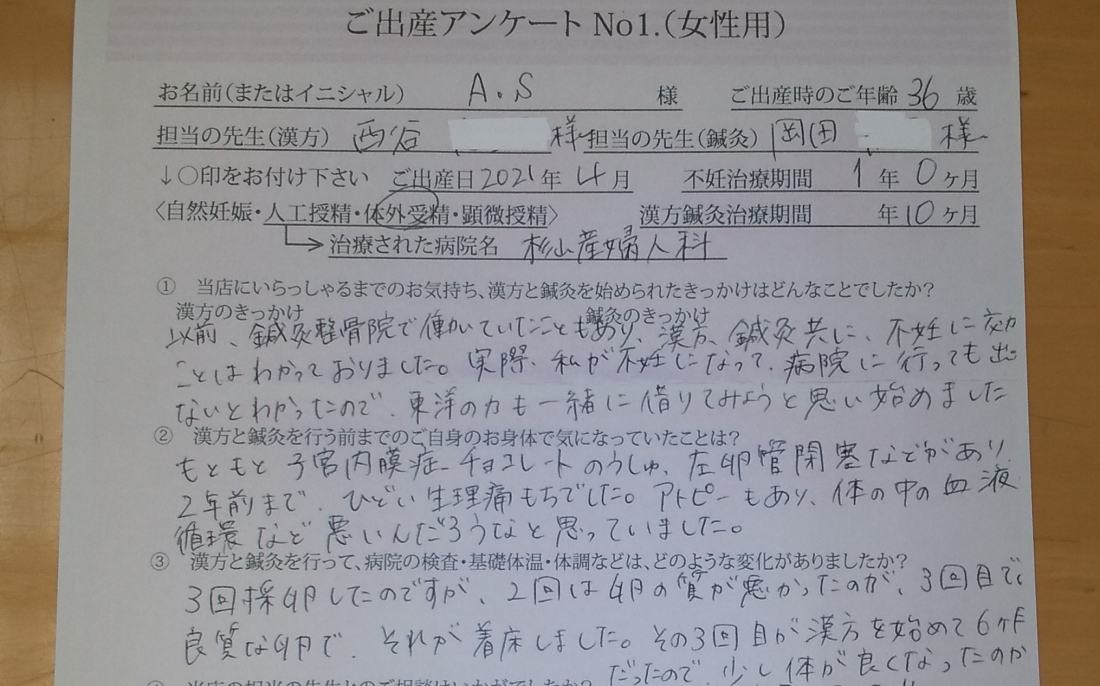 ご出産アンケート No1.（女性用）
お名前（またはイニシャル） A.S 様 ご出産時のご年齢 36 歳
担当の先生（漢方） 西谷 様 担当の先生（鍼灸） 岡田 様
↓〇印をお付け下さい ご出産日 2021 年 4 月 不妊治療期間 1 年 0 ヶ月
〈自然妊娠・人工授精・体外受精・顕微授精〉 漢方鍼灸治療期間 年 10 ヶ月
治療された病院名 杉山産婦人科
① 当店にいらっしゃるまでのお気持ち、漢方と鍼灸を始められたきっかけはどんなことでしたか?
漢方のきっかけ 鍼灸のきっかけ
以前、鍼灸整骨院で働いていたこともあり、漢方、鍼灸共に、不妊に効
ことはわかっておりました。実際、私が不妊になって、病院に行っても出
ないとわかったので、東洋の力も一緒に借りてみようと思い始めました
② 漢方と鍼灸を行う前までのご自身のお身体で気になっていたことは?
もともと子宮内膜症、チョコレートのうしゅ、左卵管閉塞などがあり
2年前まで、ひどい生理痛もちでした。アトピーもあり、体の中の血液
循環など悪いんだろうなと思っていました。
③ 漢方と鍼灸を行って、病院の検査・基礎体温・体調などは、どのような変化がありましたか?
3回採卵したのですが、2回は卵の質が悪かったのが、3回目で
良質な卵で、それが着床しました。その3回目が漢方を始めて6ヶ月
だったので、少し体が良くなったのか